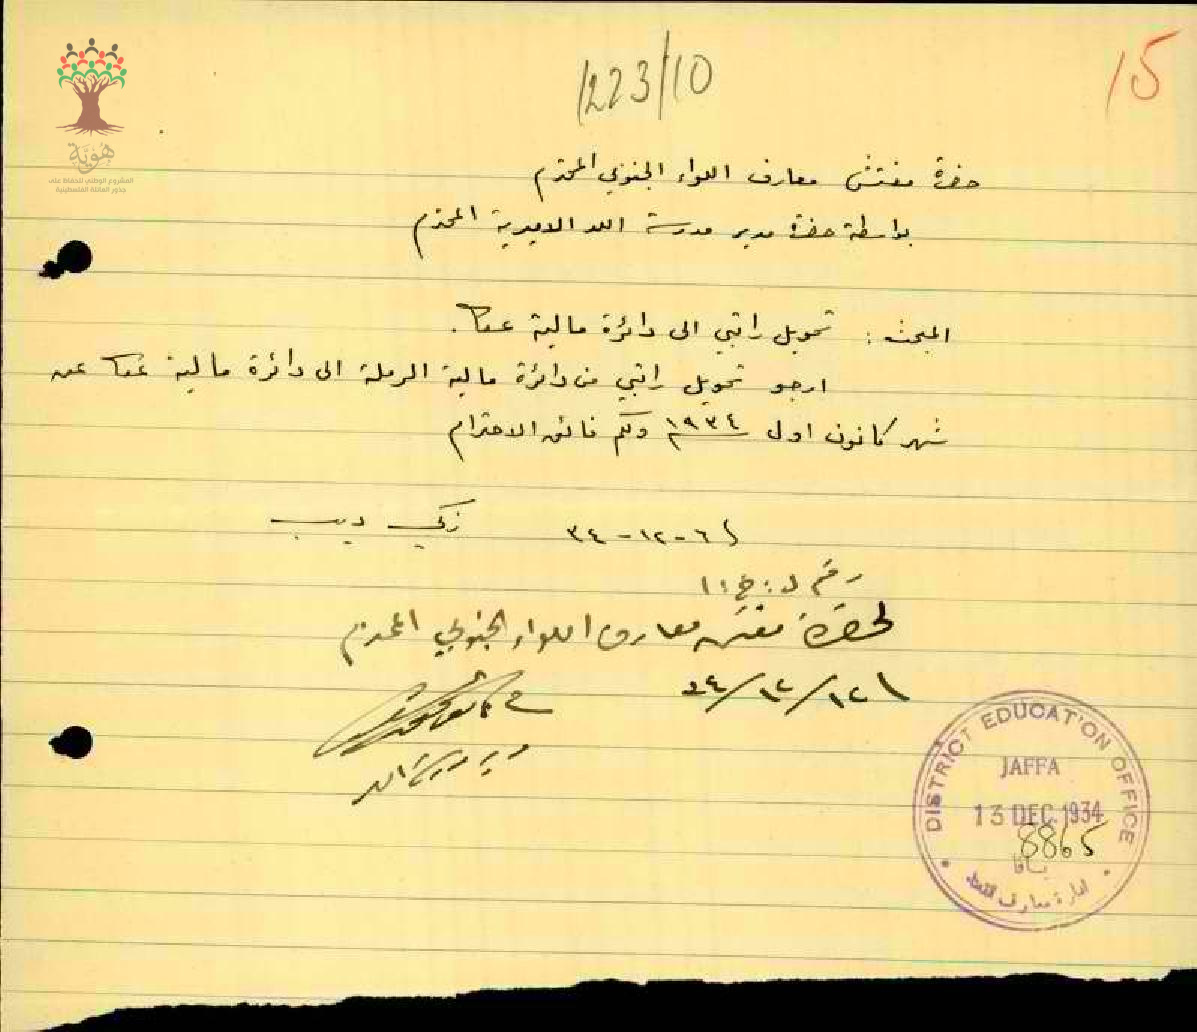 1223/10
15
هُويَّة
المشروع الوطني للحفاظ على
جذور العائلة الفلسطينية
حضرة مفتش معارف اللواء الجنوبي المحترم
بواسطة حضرة مدير مدرسة اللد الاميرية المحترم
المبحث : تحويل راتبي الى دائرة مالية عكا.
ارجو تحويل راتبي من دائرة مالية الرملة الى دائرة مالية عكا عن
شهر كانون اول ١٩٣٤ ولكم فائق الاحترام
٦-١٢-٣٤
زكي ديب
رقم ل : خ : ١
لحضرة مفتش معارف اللواء الجنوبي المحترم
١٢/١٢/٣٤
مدير مدرسة اللد
DISTRICT EDUCATION OFFICE
JAFFA
13 DEC. 1934
8865
يافا
ادارة معارف